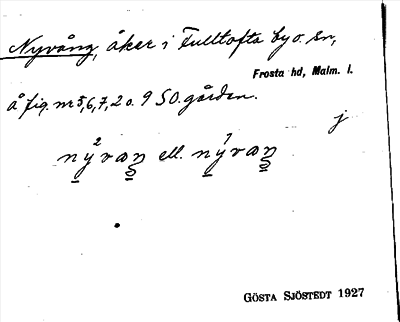 Nyvång, åker i Fulltofta by o. sn,
Frosta hd, Malm. l.
å fig. nr 5,6,7,2 o. 9 SO. gården.
j
ell.
GÖSTA SJÖSTEDT 1927